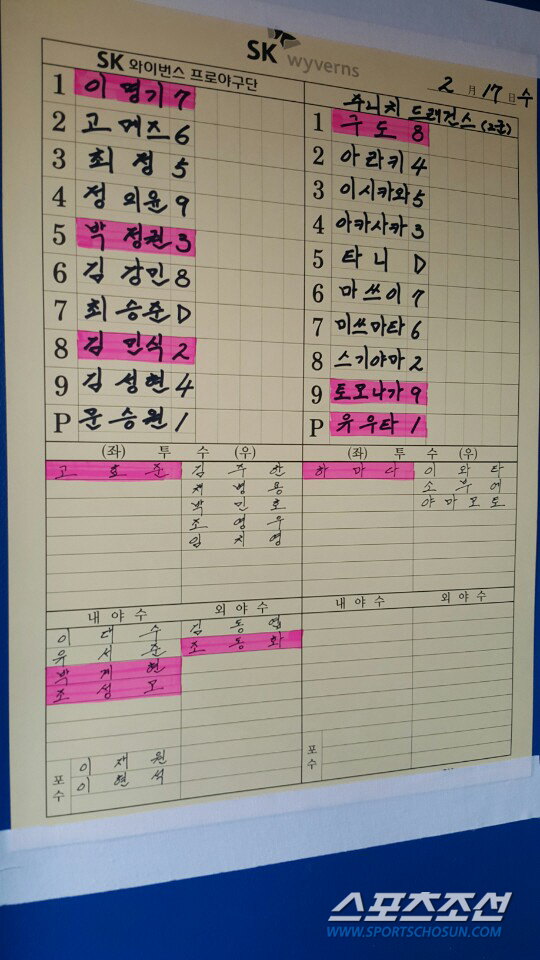 SK wyverns
2 月 17 日 수
SK 와이번스 프로야구단
1 이명기 7
2 고메즈 6
3 최정 5
4 정의윤 9
5 박정권 3
6 김강민 8
7 최승준 D
8 김민식 2
9 김성현 4
P 문승원 1
주니치 드래건스 (2군)
1 구도 8
2 아라키 4
3 이시카와 5
4 아카사카 3
5 타니 D
6 마쓰이 7
7 미쓰마타 6
8 스기야마 2
9 토모나가 9
P 유우타 1
(좌) 투 수 (우)
고효준 김주한
채병용
박민호
조영우
임치영
(좌) 투 수 (우)
하마다 이와타
소부에
야마모토
내야수 외야수
이대수 김동엽
유서준 조동화
박계현
조성모
포수
이재원
이현석
내야수 외야수
포수
스포츠조선
WWW.SPORTSCHOSUN.COM